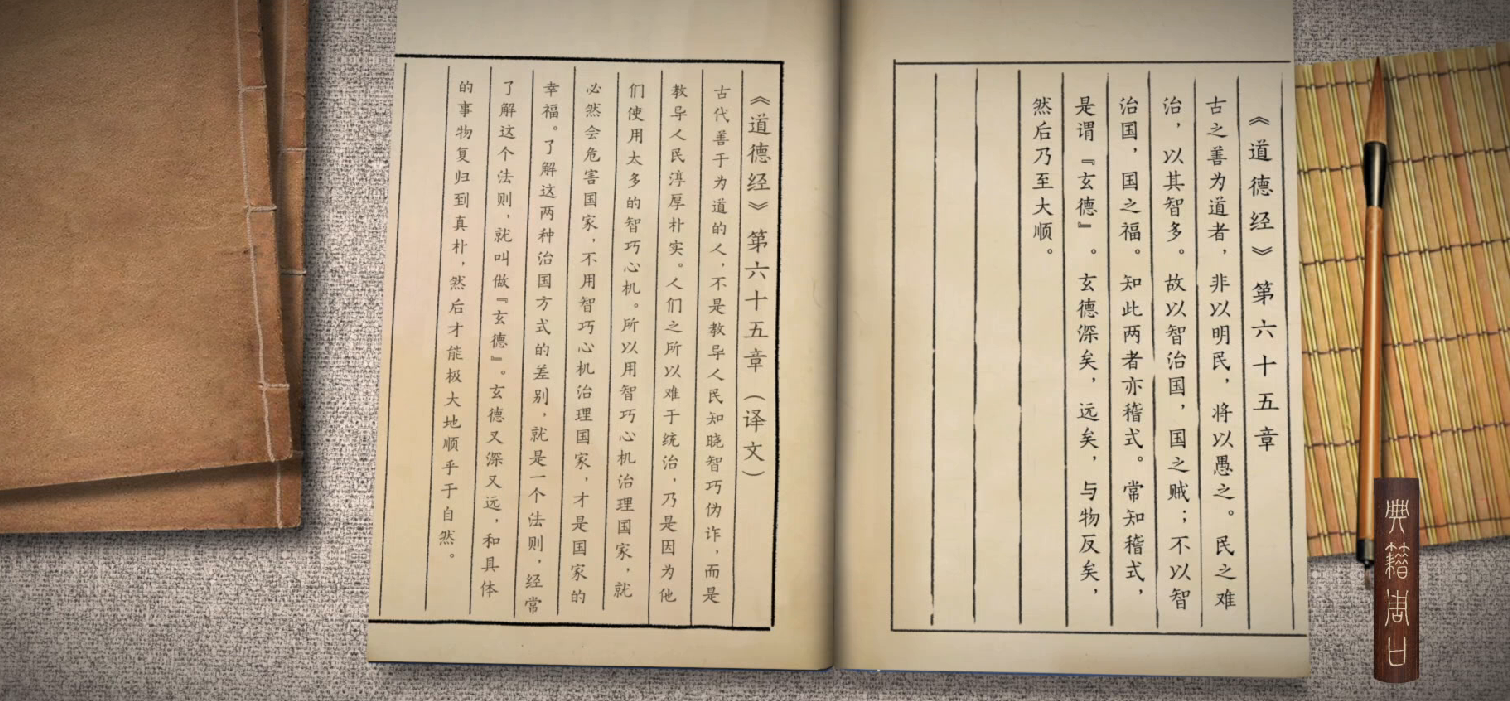 《道德经》第六十五章
古之善为道者，非以明民，将以愚之。民之难
治，以其智多。故以智治国，国之贼；不以智
治国，国之福。知此两者亦稽式。常知稽式，
是谓『玄德』。玄德深矣，远矣，与物反矣，
然后乃至大顺。
《道德经》第六十五章（译文）
古代善于为道的人，不是教导人民知晓智巧伪诈，而是
教导人民淳厚朴实。人们之所以难于统治，乃是因为他
们使用太多的智巧心机。所以用智巧心机治理国家，就
必然会危害国家，不用智巧心机治理国家，才是国家的
幸福。了解这两种治国方式的差别，就是一个法则，经常
了解这个法则，就叫做『玄德』。玄德又深又远，和具体
的事物复归到真朴，然后才能极大地顺乎于自然。